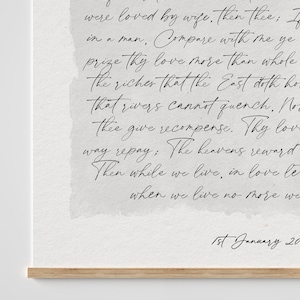 were loved by wife, then thee; If
in a man, Compare with me ye
prize thy love more than whole
the riches that the East doth ho
that rivers cannot quench, No
thee give recompense. Thy lov
way repay; The heavens reward
Then while we live, in love le
when we live no more we
1st January 20